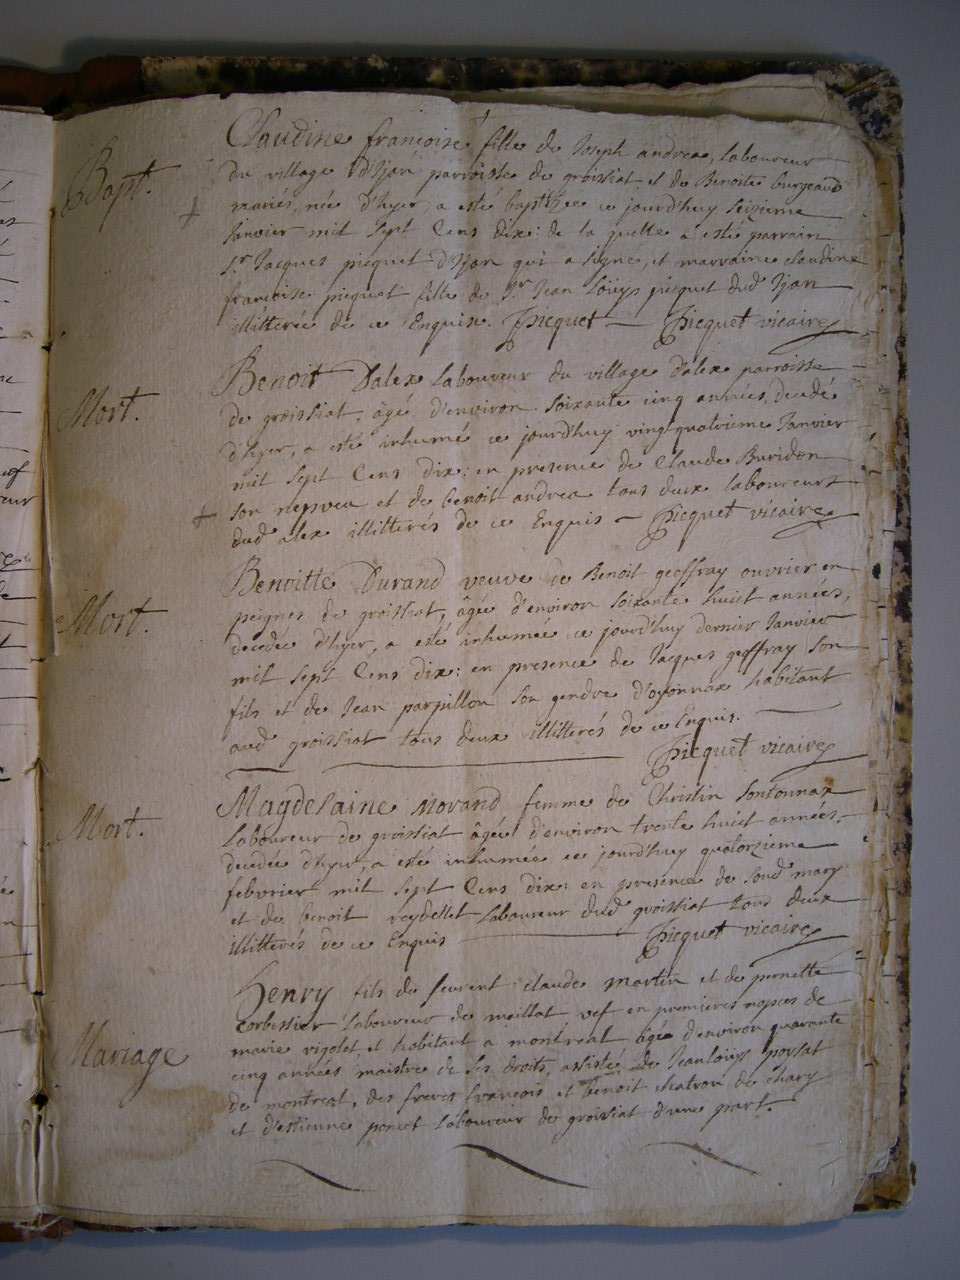 Bapt.
Claudine françoise fille de Joseph andrea, laboureur
du village d'Ijan parroisse de groissiat et de Benoite burjeaud
mariés, née d'hyer, a esté baptizée ce jourd'huy seizieme
janvier mil sept Cens dix: de la quelle a esté parrain
Sr. Jacques picquet d'Ijan qui a signe, et marraine claudine
francoise picquet fille de Sr. Jean Loüys picquet dud. Ijan
illitterée de ce Enquise. Picquet — Picquet vicaire
Mort.
Benoit Dalex laboureur du village d'alex parroisse
de groissiat, âgé d'environ soixante cinq années, decedé
d'hyer, a esté inhumé ce jourd'huy vingquatrieme Janvier
mil sept Cens dix: en presence de Claude Buridon
son nepveu et de benoit andrea tous deux laboureurs
dud. alex illitterés de ce Enquis — Picquet vicaire
Mort.
Benoitte Durand veuve de Benoit geoffray ouvrier en
peignes de groissiat, âgée d'environ soixante huict années,
decedée d'hyer, a esté inhumée ce jourd'huy dernier Janvier
mil sept Cens dix: en presence de Jacques geoffray son
fils et de Jean parpillon son gendre d'oyonnax habitant
aud. groissiat tous deux illitterés de ce Enquis.
Picquet vicaire
Mort.
Magdelaine Morand femme de Christin Sonthonnax
laboureur de groissiat âgée d'environ trente huict années,
decedée d'hyer, a esté inhumée ce jourd'huy quatorzieme
febvrier mil sept Cens dix: en presence de sond. mary
et de benoit reydellet laboureur dud. groissiat tous deux
illitterés de ce Enquis — Picquet vicaire
Mariage
Henry fils de feurent Claude Martin et de pernette
laboureur de meillat vef en premieres nopces de
marie vigolet, et habitant a montreal âgé d'environ quarante
cinq années maistre de ses droits, assisté de Jean loüys poysat
de montreal, des freres francois et benoit chatron de chary
et d'estienne poncet laboureur de groissiat d'une part.